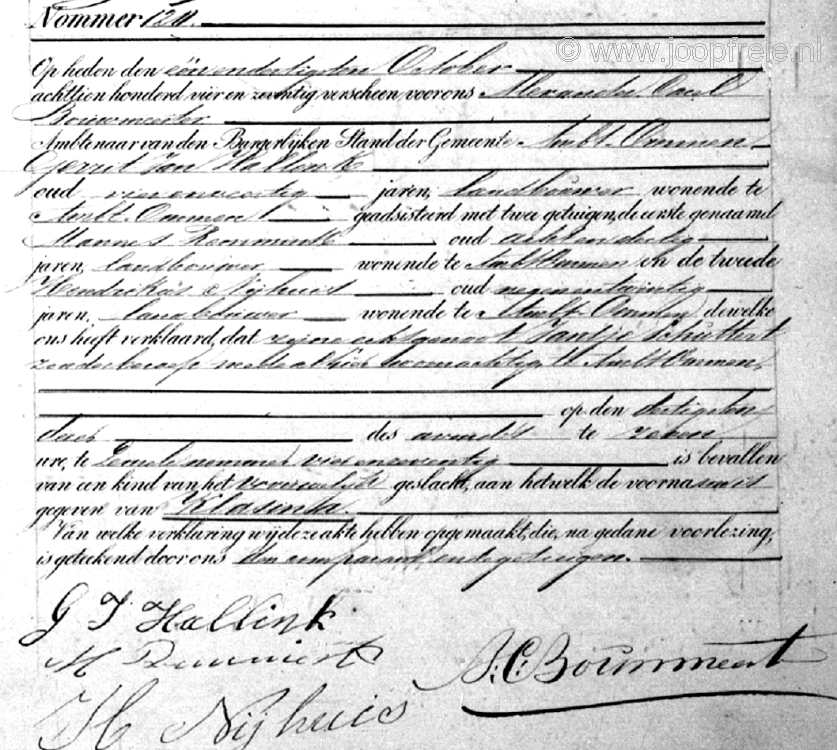 © www.joopfreie.nl
Nommer 120.
Op heden den eenendertigsten October
achttien honderd vier en zeventig verscheen voor ons Alexander Carel
Bouwmeester
Ambtenaar van den Burgerlijken Stand der Gemeente Ambt-Ommen
Gerrit Jan Hallink
oud vierenveertig jaren, landbouwer wonende te
Ambt-Ommen geadsisteerd met twee getuigen, de eerste genaamd
Mannes oud achtendertig
jaren, landbouwer wonende te Ambt Ommen en de tweede
Hendrikus Nijhuis oud negenentwintig
jaren, landbouwer wonende te Ambt-Ommen, dewelke
ons heeft verklaard, dat zijne echtgenoot Jantje Schuttert
zonder beroep mede alhier woonachtig te Ambt Ommen,
op den dertigsten
dezer des avonds te zeven
ure, te Lemele nommer vierenzeventig is bevallen
van een kind van het vrouwelijk geslacht, aan hetwelk de voornaam is
gegeven van Klasina.
Van welke verklaring wij deze akte hebben opgemaakt, die, na gedane voorlezing,
is geteekend door ons den comparant en de getuigen.
G J Hallink
M
A.C. Bouwmeest
H Nijhuis